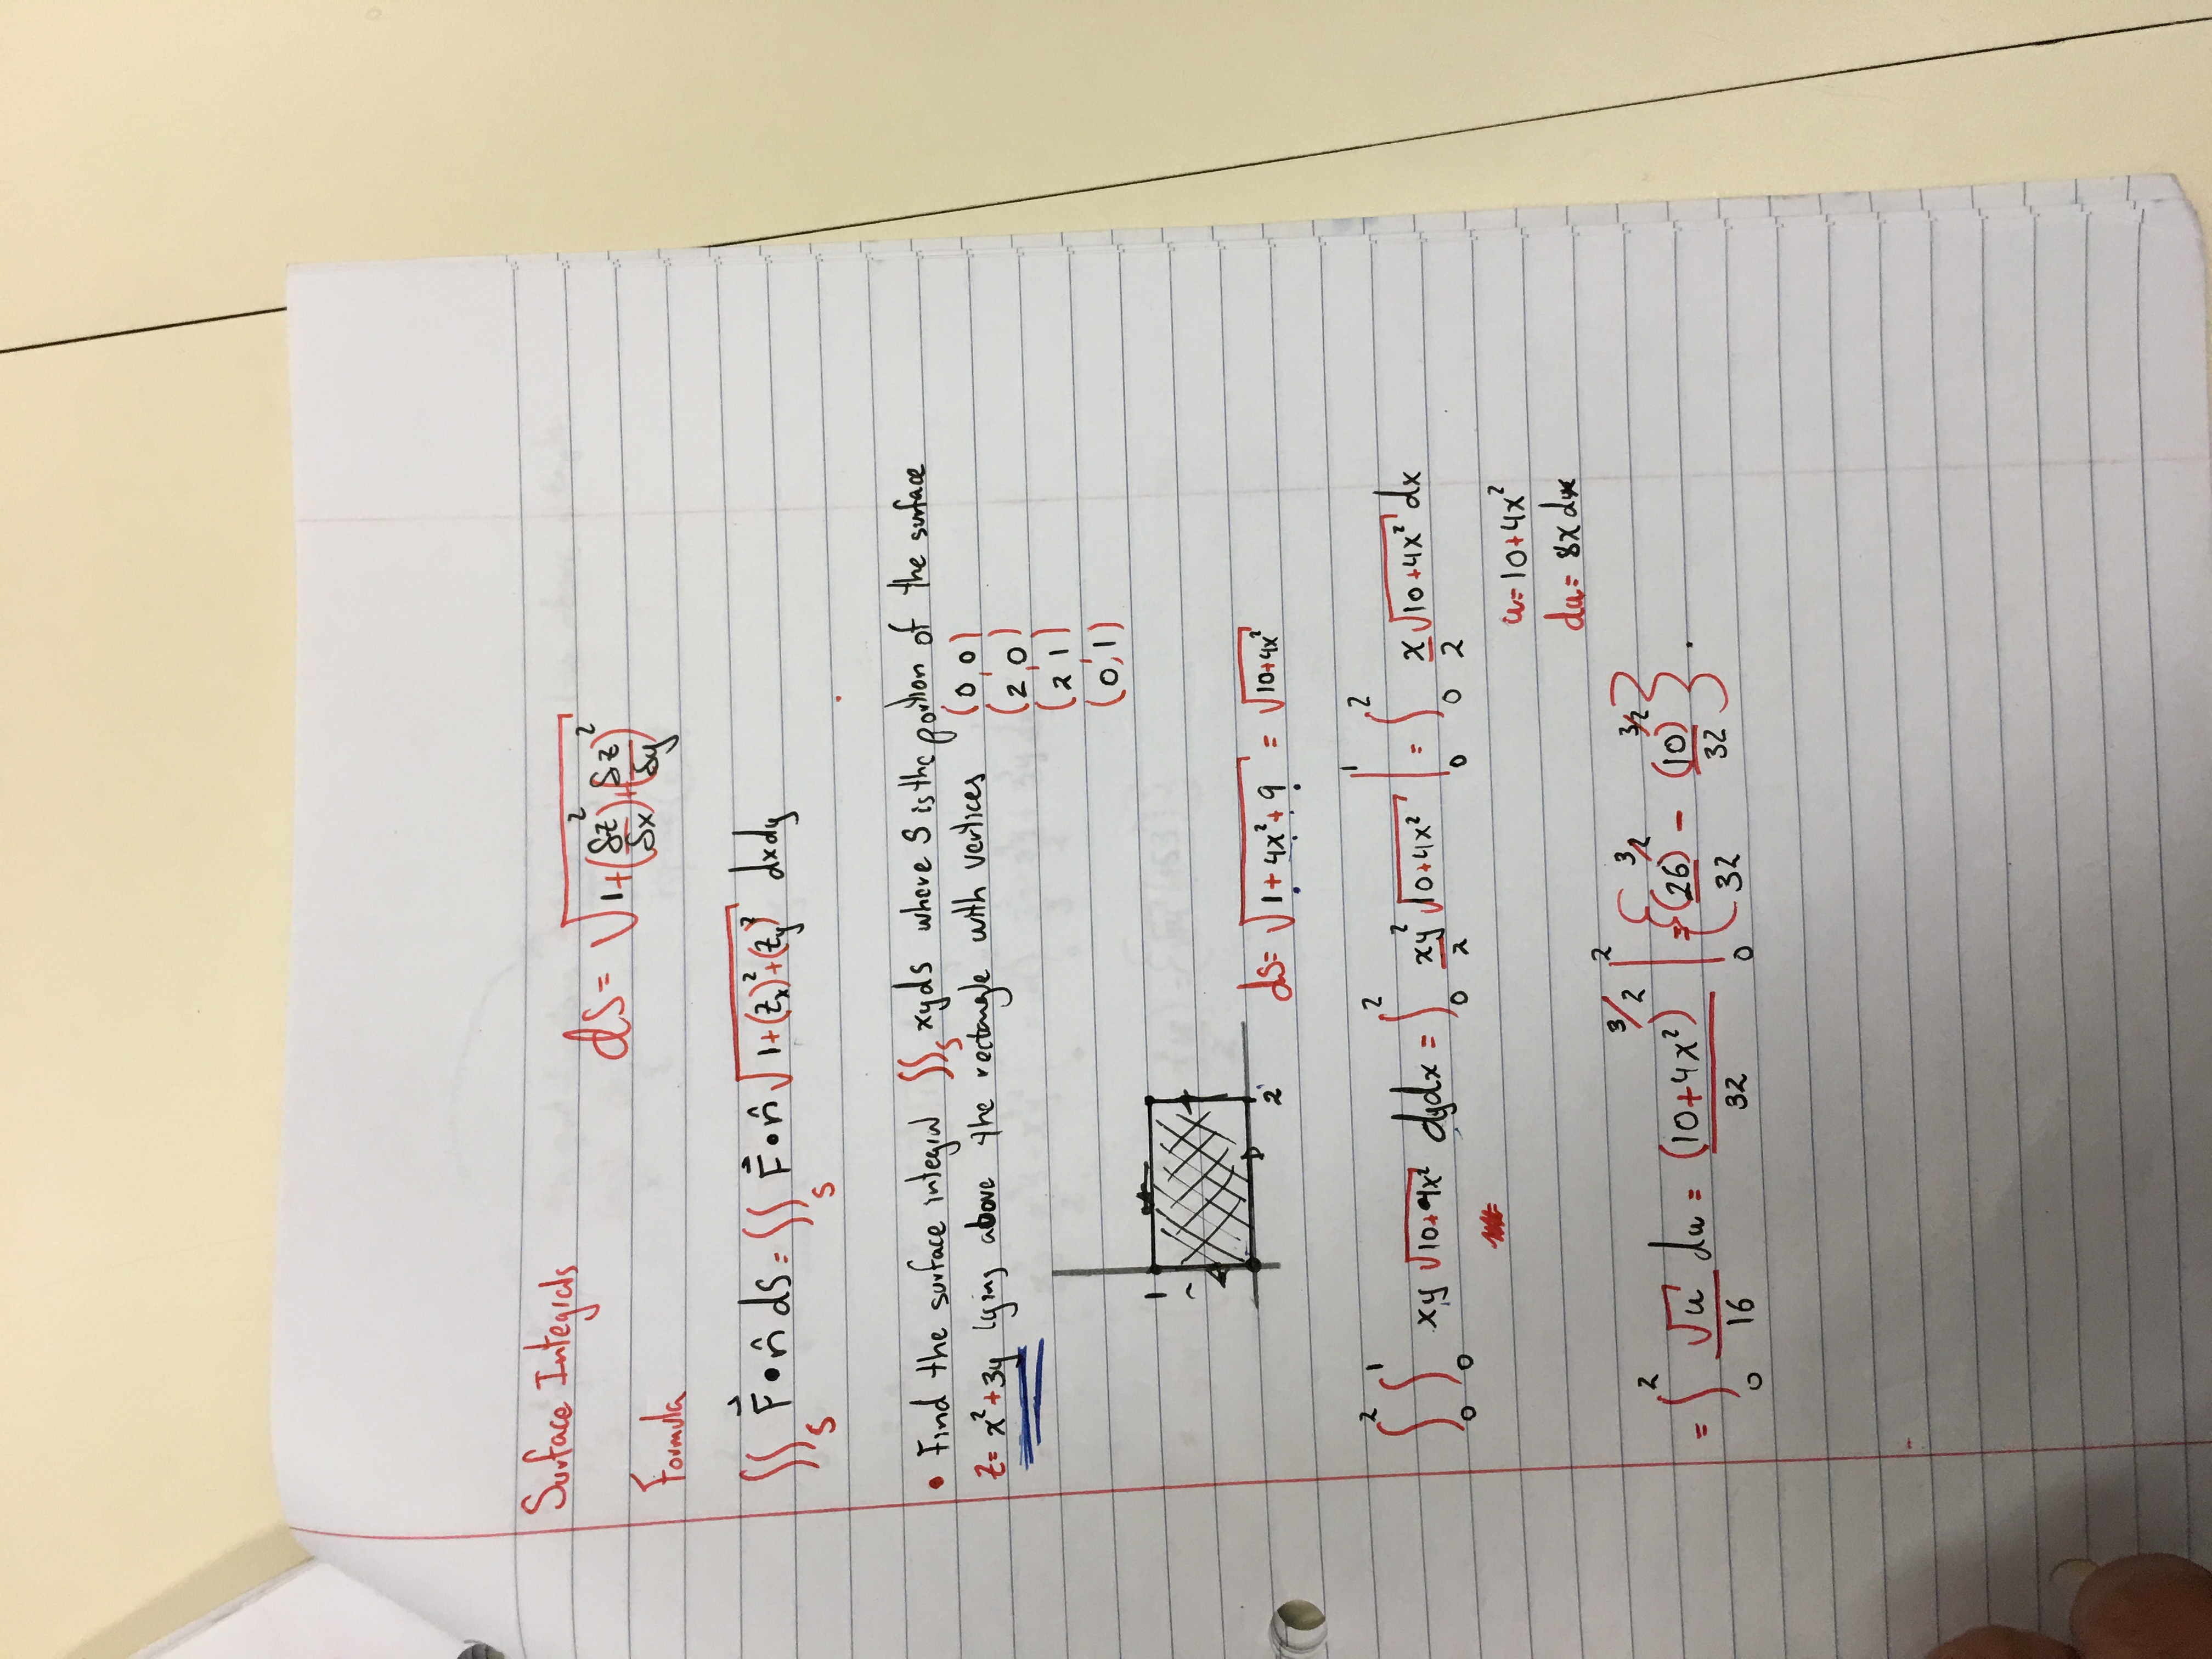 Surface Integrals
dS = √(1+(δz/δx)²+(δz/δy)²)
Formula
∬_S F⃗•n̂ dS = ∬_S F⃗•n̂ √(1+(z_x)²+(z_y)²) dxdy
• Find the surface integral ∬_S xyds where S is the portion of the surface
z = x²+3y lying above the rectangle with vertices (0,0)
(2,0)
(2,1)
(0,1)
1
2
dS = √(1+4x²+9) = √(10+4x²)
∫₀² ∫₀¹ xy √(10+4x²) dydx = ∫₀² xy²/2 √(10+4x²) |₀¹ = ∫₀² x/2 √(10+4x²) dx
u = 10+4x²
du = 8x dx
= ∫₀² √u/16 du = (10+4x²)^(3/2)/32 |₀² = {(26)^(3/2)/32 - (10)^(3/2)/32}.